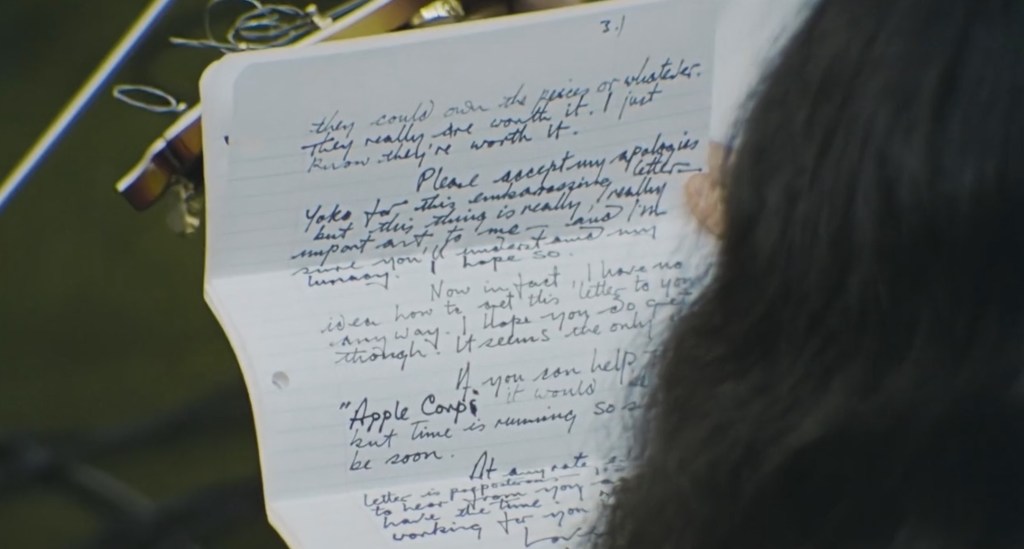 3.)
they could own the pieces or whatever.
They really are worth it. I just
know they're worth it.
Please accept my apologies
Yoko for this embarassing letter
but this thing is really, really
important, to me — and I'm
sure you'll understand my
lunacy. I hope so.
Now in fact, I have no
idea how to get this letter to you
anyway. I hope you do get
though. It seems the only
If you can help
"Apple Corps it would
but time is running so
be soon.
At any rate,
letter is
to hear from you
have the time
working for you
Love